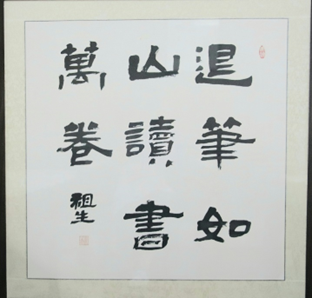 退筆如
山讀書
萬卷
祖生